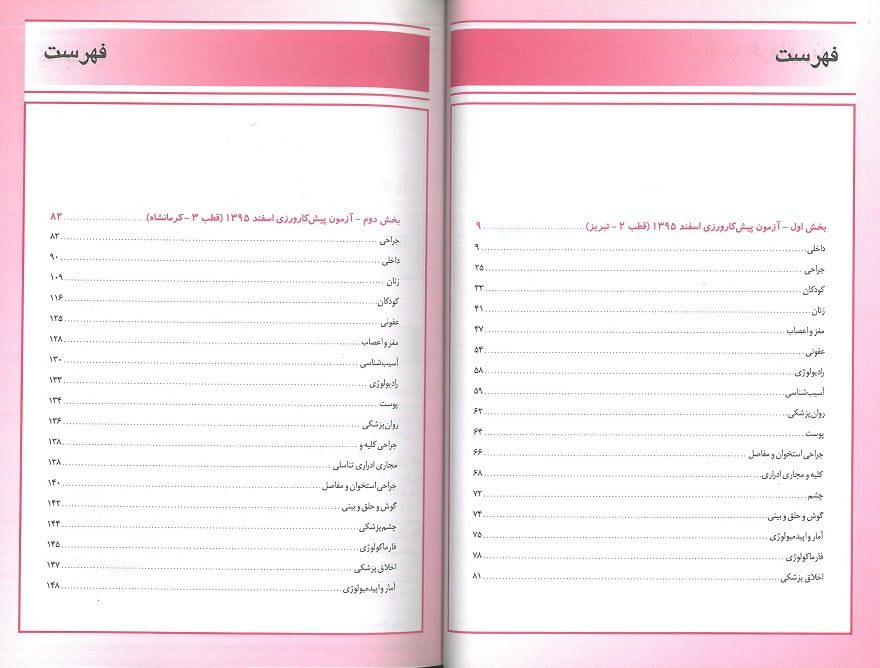 فهرست
بخش اول - آزمون پیش‌کارورزی اسفند ۱۳۹۵ (قطب ۲ - تبریز) ........ ۹
داخلی ........ ۹
جراحی ........ ۲۵
کودکان ........ ۳۳
زنان ........ ۴۱
مغز و اعصاب ........ ۴۷
عفونی ........ ۵۴
رادیولوژی ........ ۵۸
آسیب‌شناسی ........ ۵۹
روان‌پزشکی ........ ۶۲
پوست ........ ۶۴
جراحی استخوان و مفاصل ........ ۶۶
کلیه و مجاری ادراری ........ ۶۸
چشم ........ ۷۲
گوش و حلق و بینی ........ ۷۴
آمار و اپیدمیولوژی ........ ۷۵
فارماکولوژی ........ ۷۸
اخلاق پزشکی ........ ۸۱
فهرست
بخش دوم - آزمون پیش‌کارورزی اسفند ۱۳۹۵ (قطب ۳ - کرمانشاه) ........ ۸۲
جراحی ........ ۸۲
داخلی ........ ۹۰
زنان ........ ۱۰۹
کودکان ........ ۱۱۶
عفونی ........ ۱۲۵
مغز و اعصاب ........ ۱۲۸
آسیب‌شناسی ........ ۱۳۰
رادیولوژی ........ ۱۳۳
پوست ........ ۱۳۴
روان‌پزشکی ........ ۱۳۶
جراحی کلیه و ........ ۱۳۸
مجاری ادراری تناسلی ........ ۱۳۸
جراحی استخوان و مفاصل ........ ۱۴۰
گوش و حلق و بینی ........ ۱۴۲
چشم‌پزشکی ........ ۱۴۴
فارماکولوژی ........ ۱۴۵
اخلاق پزشکی ........ ۱۴۷
آمار و اپیدمیولوژی ........ ۱۴۸